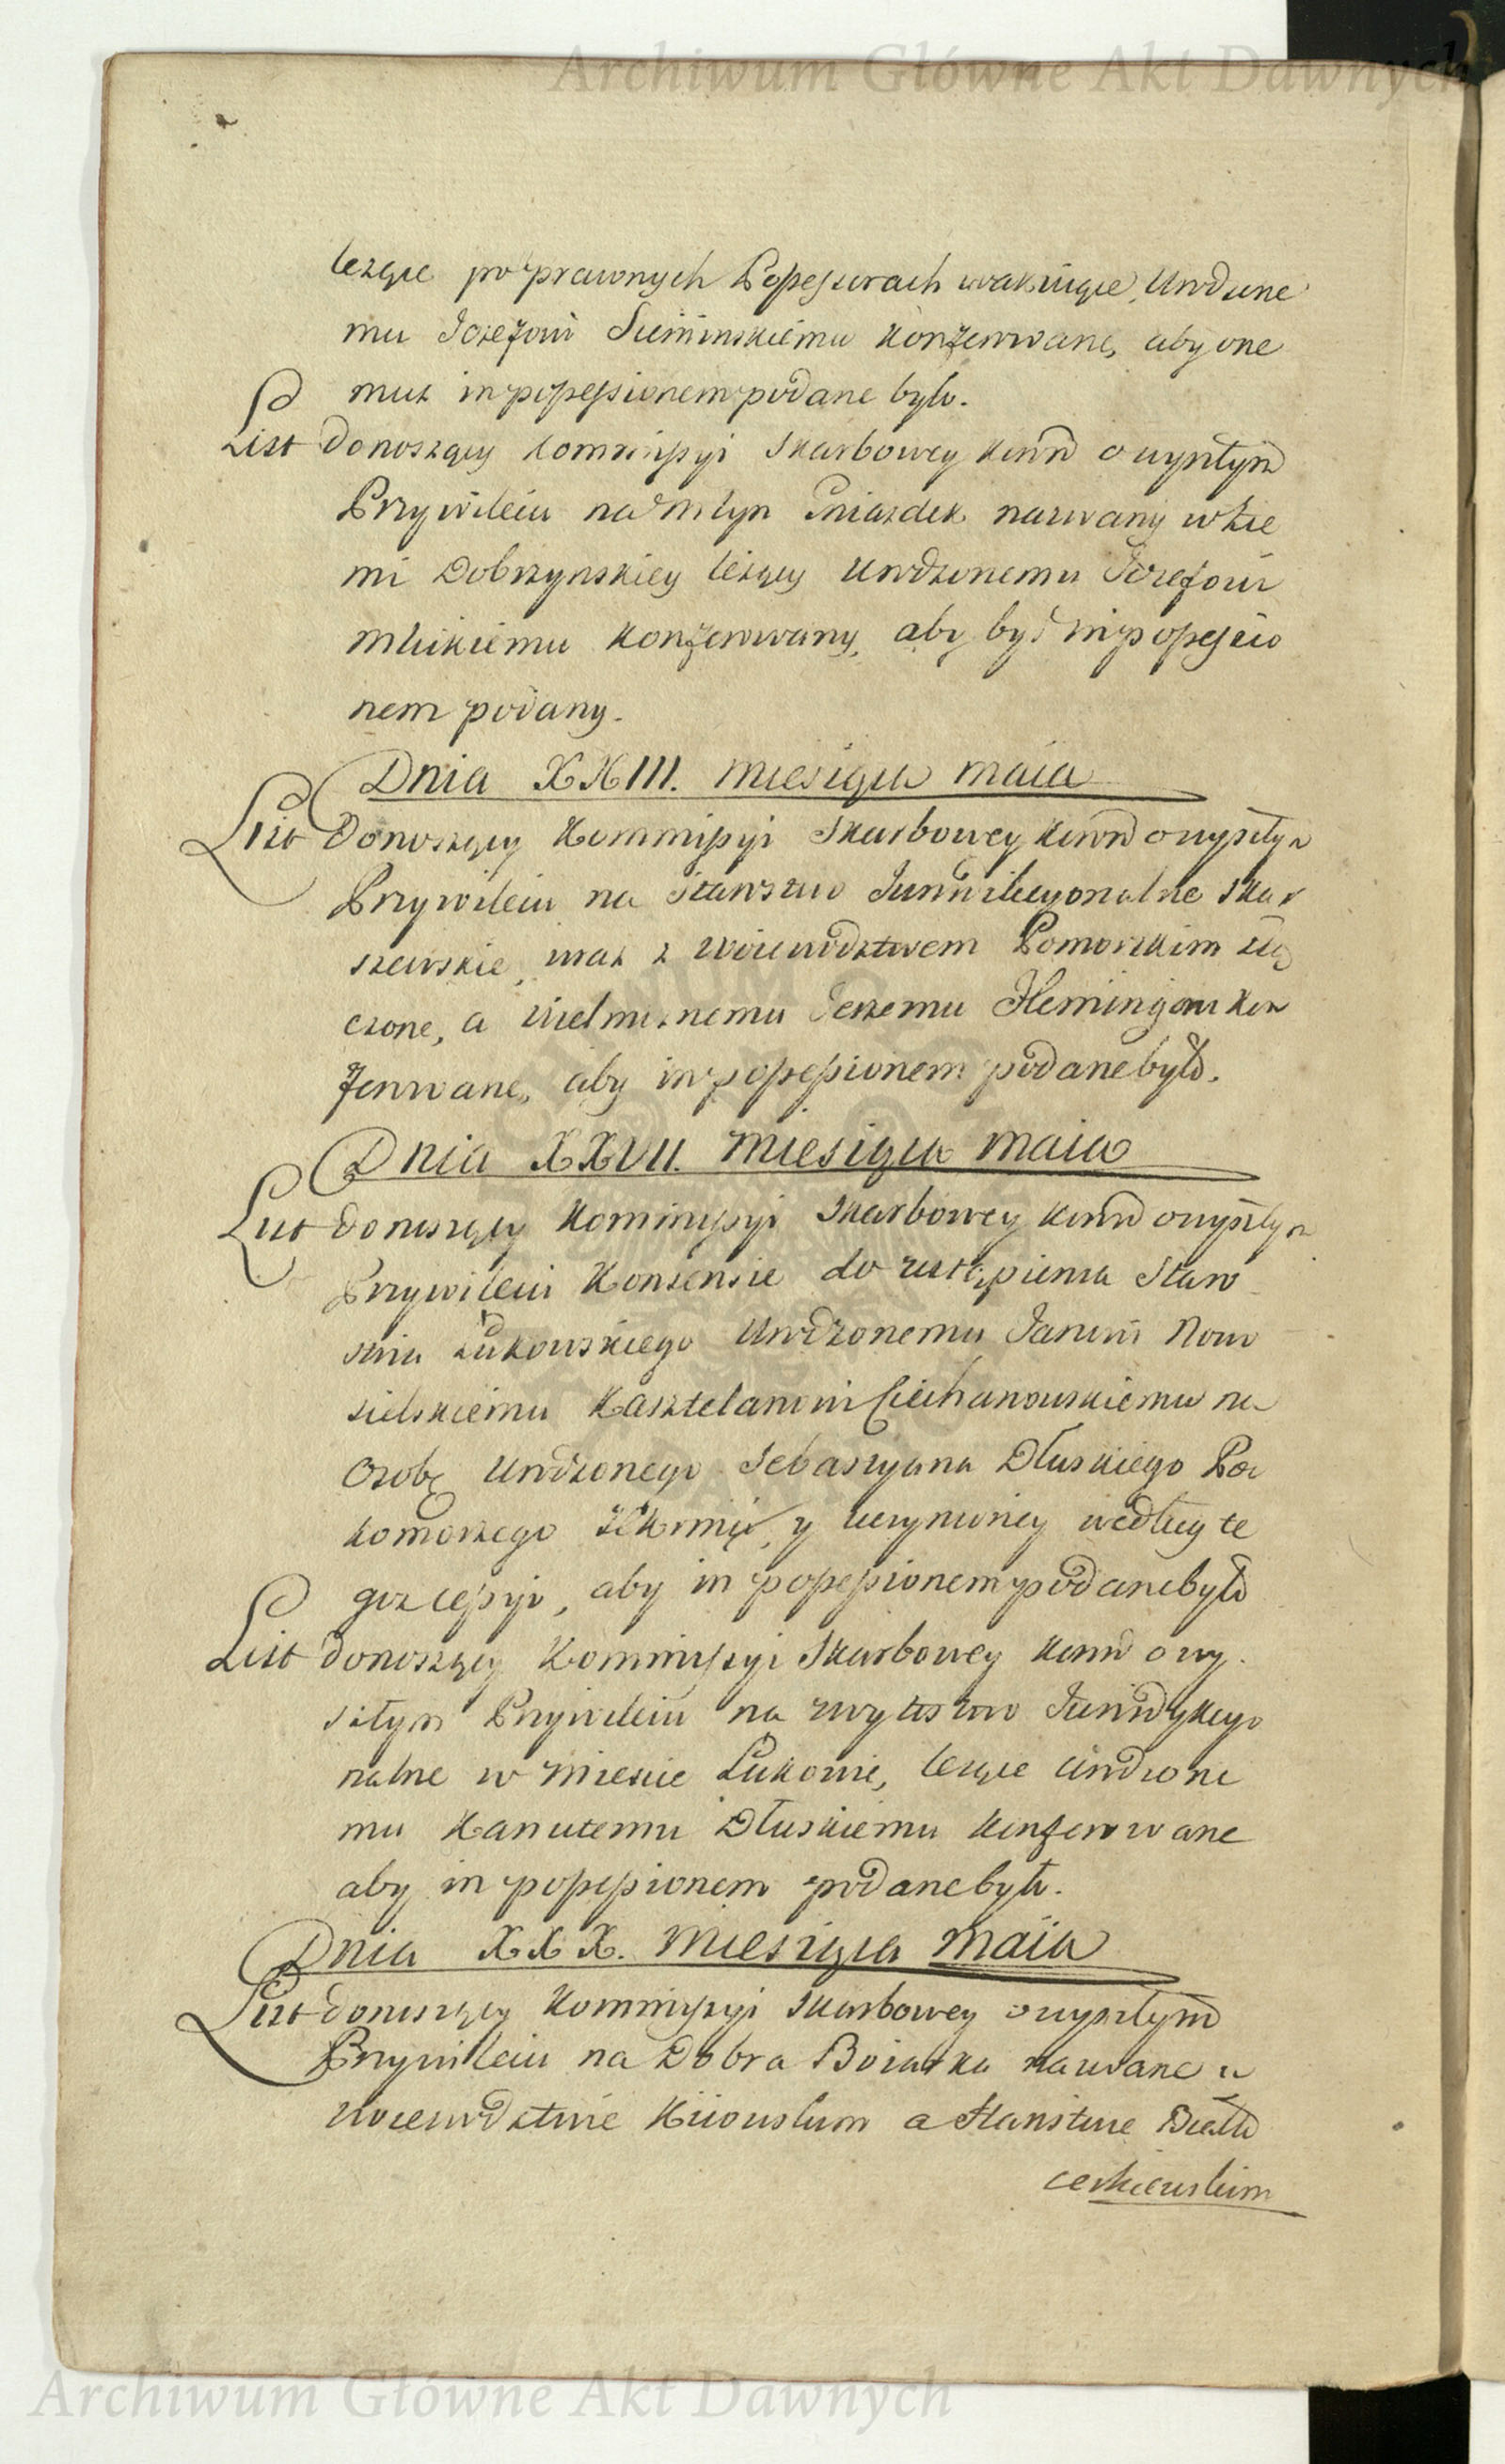 Archiwum Główne Akt Dawnych
leżące po prawnych Possessorach wakuiące, Urodzone
mu Jozefowi Sieminskiemu konferowane, aby one
muż in possessionem podane było.
List donoszący Kommissyi Skarbowey Koron o wyszłym
Przywileiu na Młyn Gniazdek nazwany w Zie
mi Dobrzynskiey leżący Urodzonemu Jozefowi
konferowany, aby był in possessio
nem podany.
Dnia XXIII. Miesiąca Maia
List Donoszący Kommissyi Skarbowey Koron o wyszłym
Przywileiu na Starostwo Jurisdikcyonalne Skar
szewskie, wraz z Woiewodztwem Pomorskim złą
czone, a Wielmożnemu Jerzemu Flemingowi kon
ferowane, aby in possessionem podane było.
Dnia XXVII. Miesiąca Maia
List donoszący Kommissyi Skarbowey Koron o wyszłym
Przywileiu Konsensie do ustąpienia Staro
stwa Łukowskiego Urodzonemu Janowi Nowo
sielskiemu Kasztelanowi Ciechanowskiemu na
Osobę Urodzonego Sebastyana Dłuskiego Po
komorzego y uczynioney według te
goż cessyi, aby in possessionem podane było
List donoszący Kommissyi Skarbowey Koron o wy
szłym Przywileiu na Woytostwo Jurisdykcyo
nalne w Miescie Łukowie, leżące Urodzone
mu Kanutemu Dłuskiemu konferowane
aby in possessionem podane było.
Dnia XXX. Miesiąca Maia
List donoszący Kommissyi Skarbowey o wyszłym
Przywileiu na Dobra Boiarka nazwane w
Woiewodztwie Kiiowskim a Starostwie Biało
cerkiewskim
Archiwum Główne Akt Dawnych